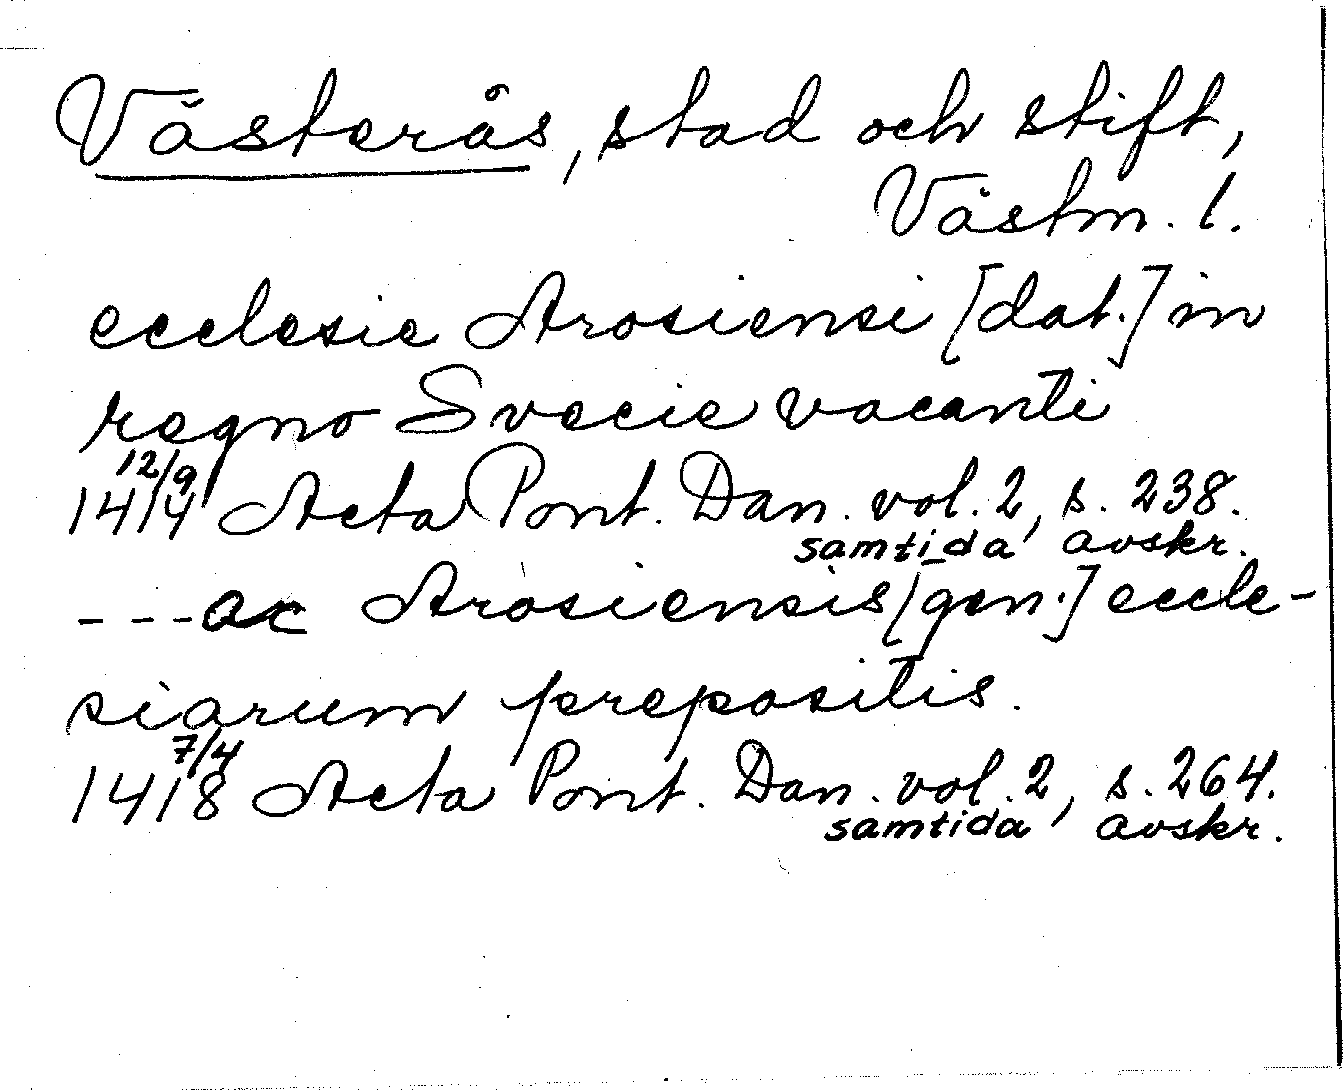 Västerås, stad och stift,
Västm. l.
ecclesie Arosiensi [dat.] in
regno Svecie vacanti
12/9
1414 Acta Pont. Dan. vol. 2, s. 238.
samtida avskr.
- - - ac Arosiensis [gen.] eccle-
siarum prepositis.
7/4
1418 Acta Pont. Dan. vol. 2, s. 264.
samtida avskr.